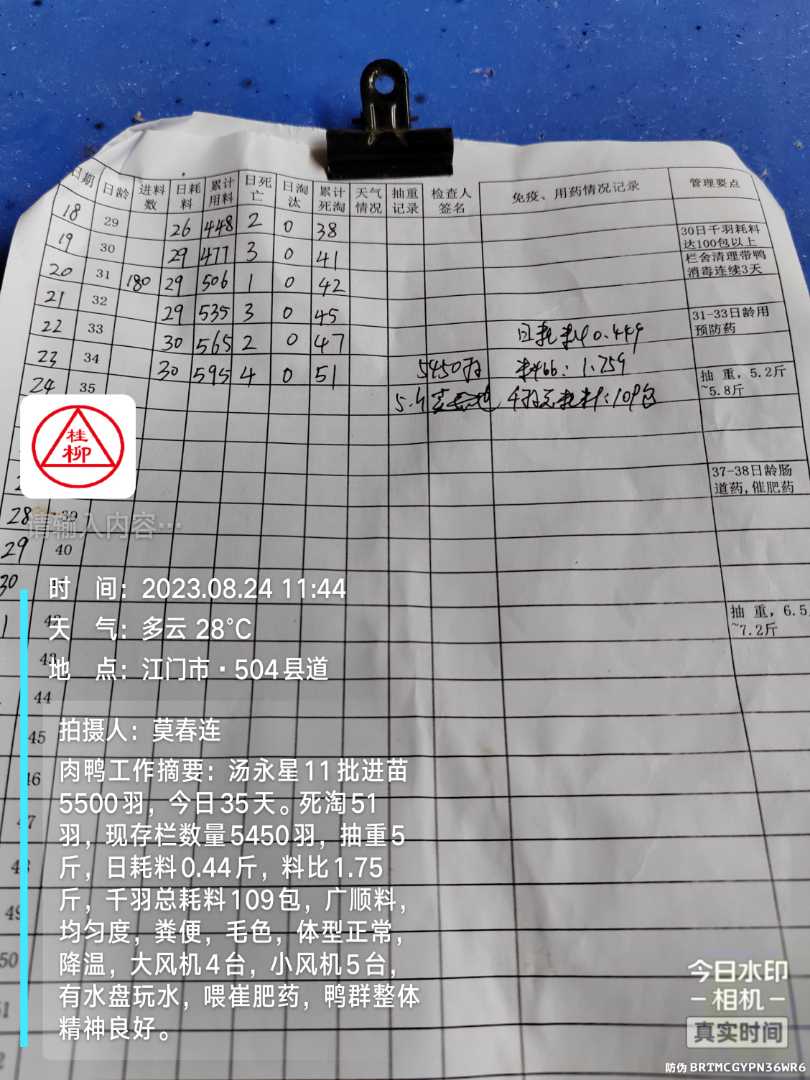 日期 日龄 进料数 日耗料 累计用料 日死亡 日淘汰 累计死淘 天气情况 抽重记录 检查人签名 免疫、用药情况记录 管理要点
18 29 26 448 2 0 38
19 30 29 477 3 0 41 30日千羽耗料达100包以上
20 31 180 29 506 1 0 42 栏舍清理带鸭消毒连续3天
21 32 29 535 3 0 45
22 33 30 565 2 0 47 日耗料0.449 31-33日龄用预防药
23 34 30 595 4 0 51 5450羽 料比:1.759
24 35 5.4 千羽总耗料:109包 抽重,5.2斤~5.8斤
37-38日龄肠道药,催肥药
28 39
请输入内容…
29 40
30
42 抽重,6.5~7.2斤
43
44
45
46
47
48
49
50
桂柳
时 间:2023.08.24 11:44
天 气:多云 28°C
地 点:江门市·504县道
拍摄人:莫春连
肉鸭工作摘要:汤永星11批进苗
5500羽,今日35天。死淘51
羽,现存栏数量5450羽,抽重5
斤,日耗料0.44斤,料比1.75
斤,千羽总耗料109包,广顺料,
均匀度,粪便,毛色,体型正常,
降温,大风机4台,小风机5台,
有水盘玩水,喂崔肥药,鸭群整体
精神良好。
今日水印
相机
真实时间
防伪 BRTMCGYPN36WR6